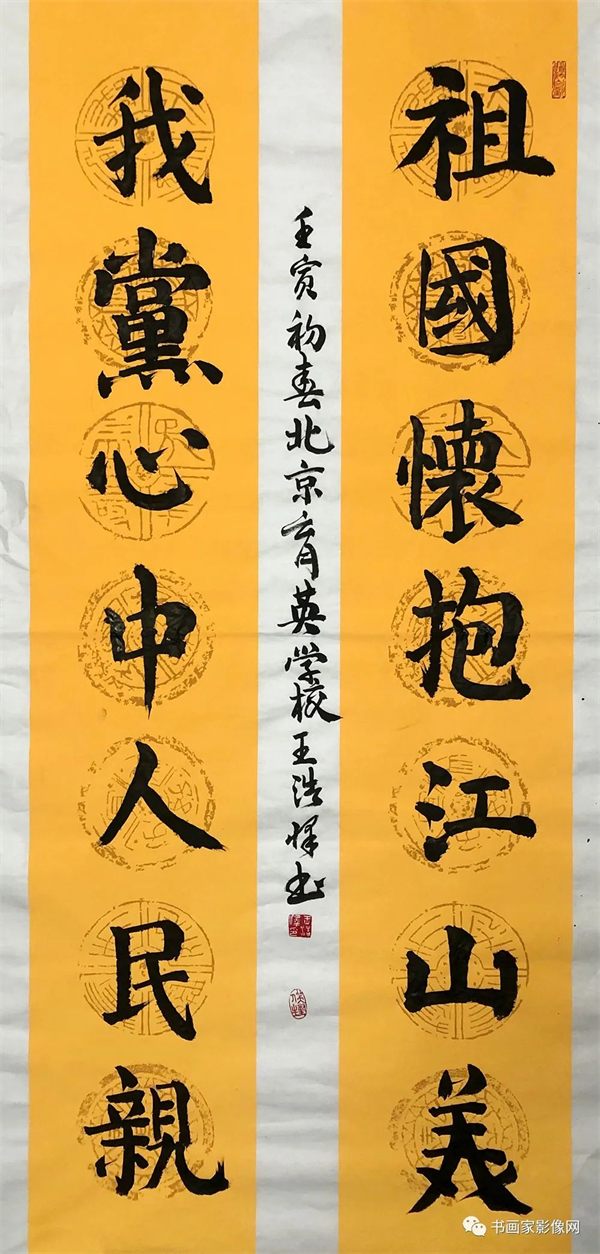 祖國懷抱江山美
我黨心中人民親
壬寅初春北京育英学校王浩怿书
书画家影像网